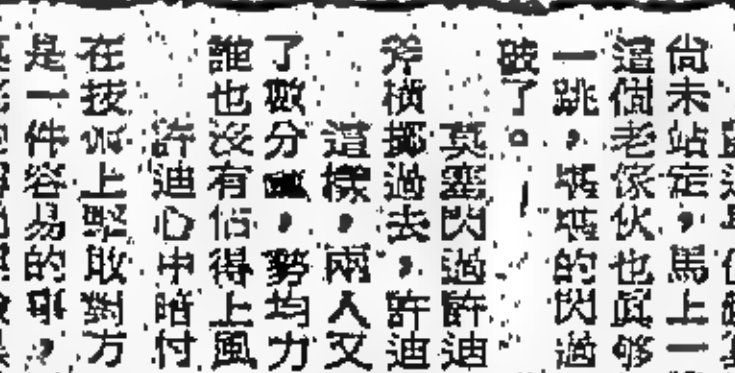 尙未站定，馬上一
這個老傢伙也眞够
一跳，堪堪的閃過
破了。
莫塞閃過許迪
斧橫擲過去，許迪
這樣，兩人又
了數分鐘，勢均力
誰也沒有佔得上風
許迪心中暗忖
在技術上堅取對方
是一件容易的事，